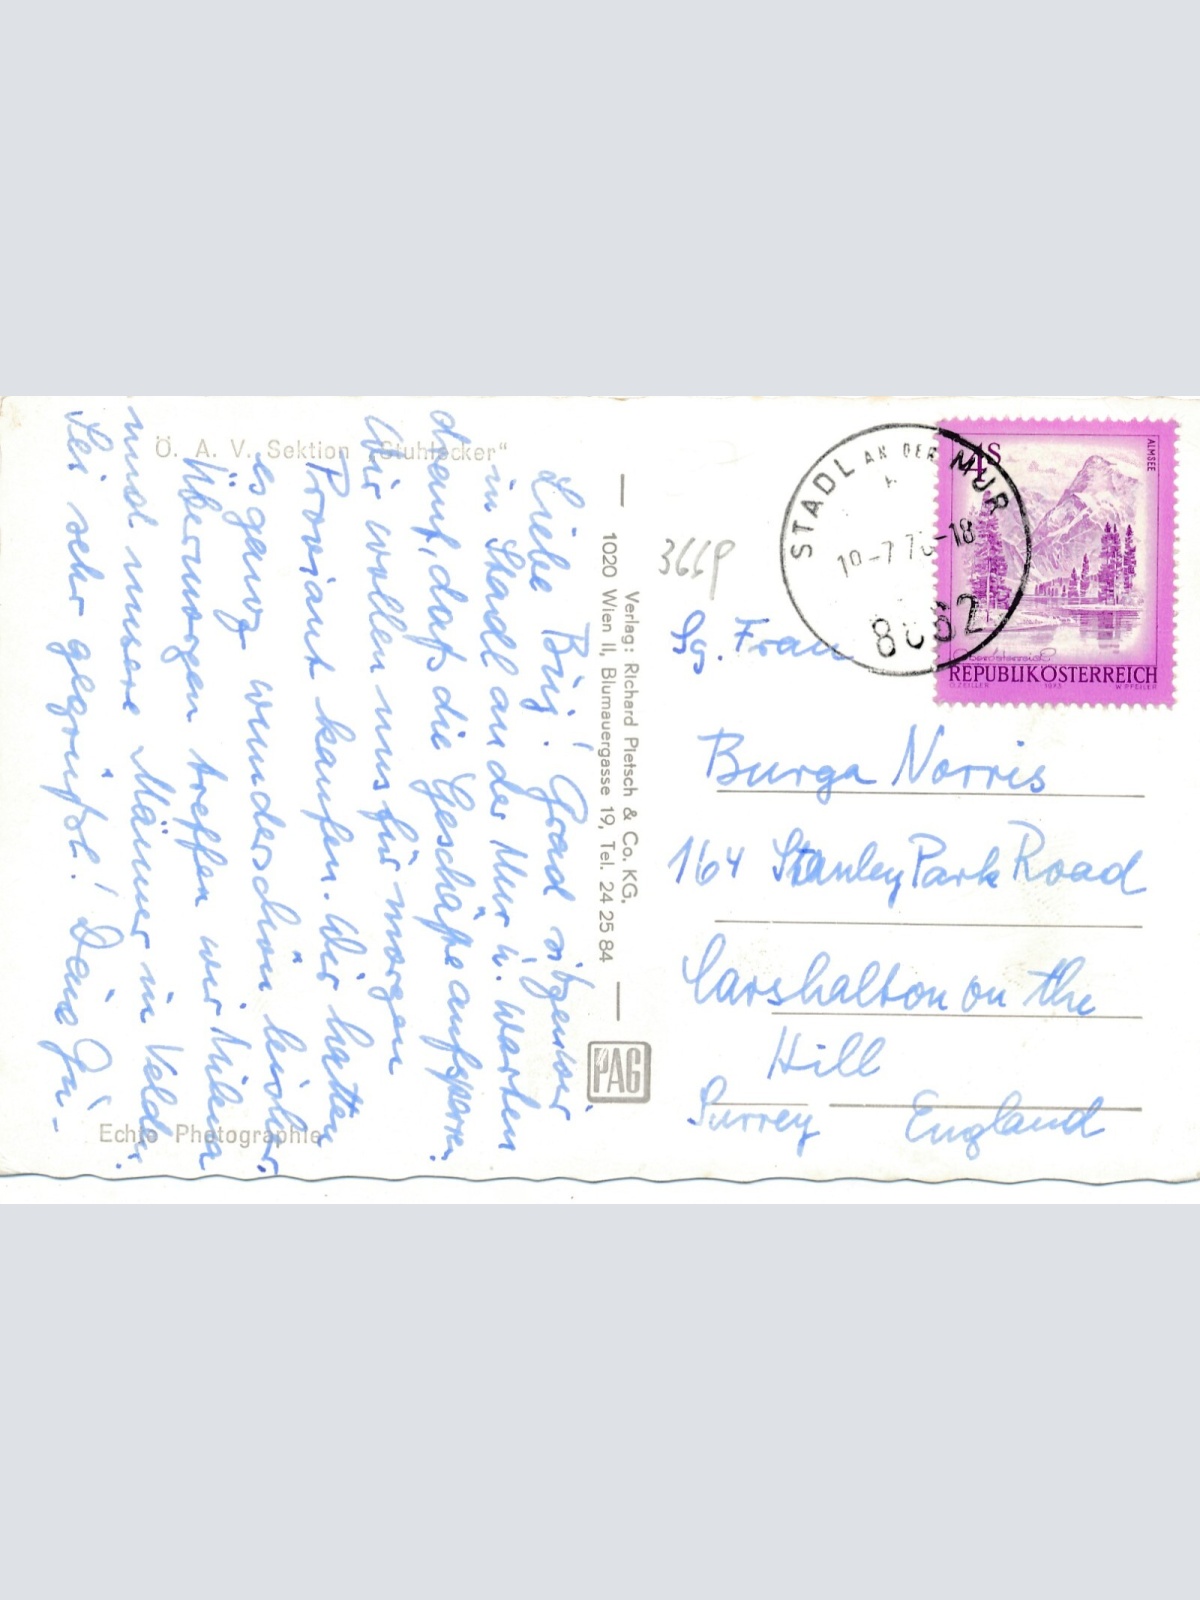 Ö. A. V. Sektion „Stuhlecker"
Liebe Burgi! Grad sitzen wir
in Stadl an der Mur u. warten
drauf, daß die Geschäfte aufsperren.
Wir wollen uns für morgen
Proviant kaufen. Wir hatten
es ganz wunderschön bisher.
Übermorgen treffen wir Milena
und unsere Männer in Velden.
Sei sehr gegrüßt! Deine
Echte Photographie
Verlag: Richard Pietsch & Co. KG.
1020 Wien II, Blumauergasse 19, Tel. 24 25 84
PAG
3669
STADL AN DER MUR
-18
4S
ALMSEE
REPUBLIK ÖSTERREICH
O. ZEILLER 1973 W. PFEILER
Sg. Frau
Burga Norris
164 Stanley Park Road
Carshalton on the
Hill
Surrey England